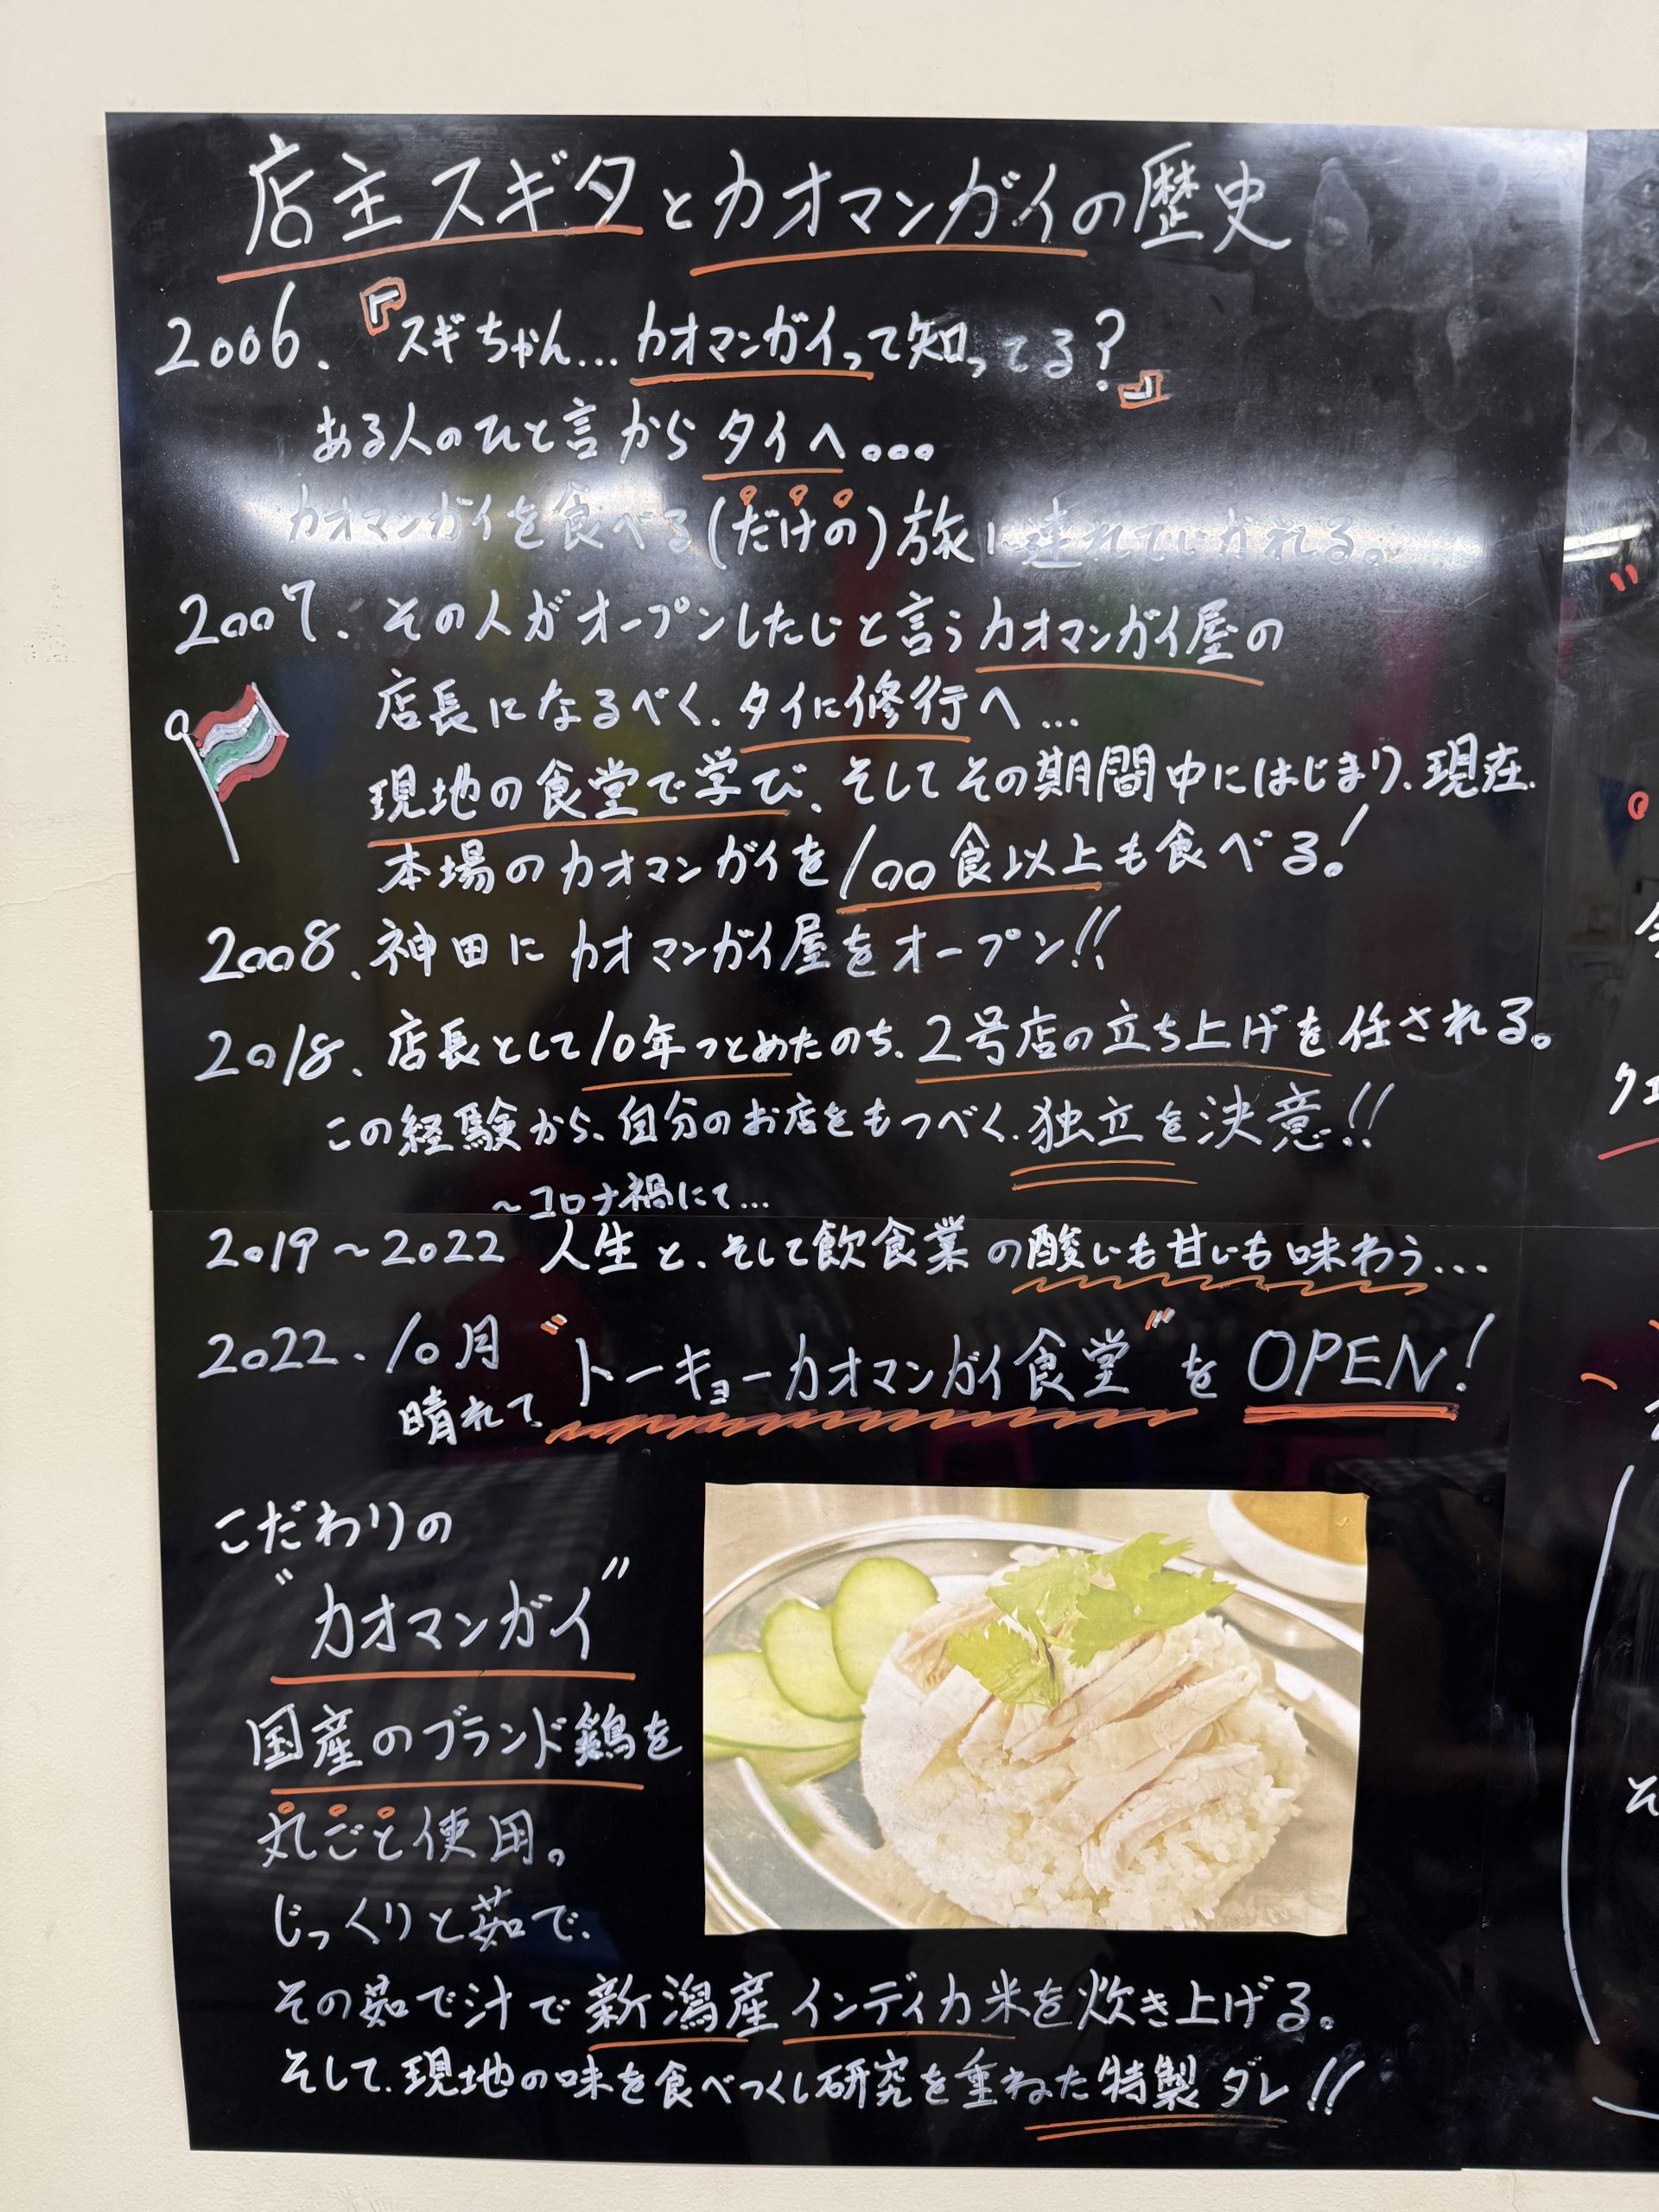 店主スギタとカオマンガイの歴史
2006. 『スギちゃん...カオマンガイって知ってる?』
ある人のひと言からタイへ。。。
カオマンガイを食べる(だけの)旅に連れていかれる。
2007. その人がオープンしたいと言うカオマンガイ屋の
店長になるべく、タイに修行へ...
現地の食堂で学び、そしてその期間中にはじまり、現在、
本場のカオマンガイを100食以上も食べる!
2008、神田にカオマンガイ屋をオープン!!
2018、店長として10年つとめたのち、2号店の立ち上げを任される。
この経験から、自分のお店をもつべく、独立を決意!!
~コロナ禍にて...
2019~2022 人生と、そして飲食業の酸いも甘いも味わう...
2022.10月
晴れて、"トーキョーカオマンガイ食堂"をOPEN!
こだわりの
"カオマンガイ"
国産のブランド鶏を
丸ごと使用。
じっくりと茹で、
その茹で汁で新潟産インディカ米を炊き上げる。
そして、現地の味を食べつくし研究を重ねた特製ダレ!!